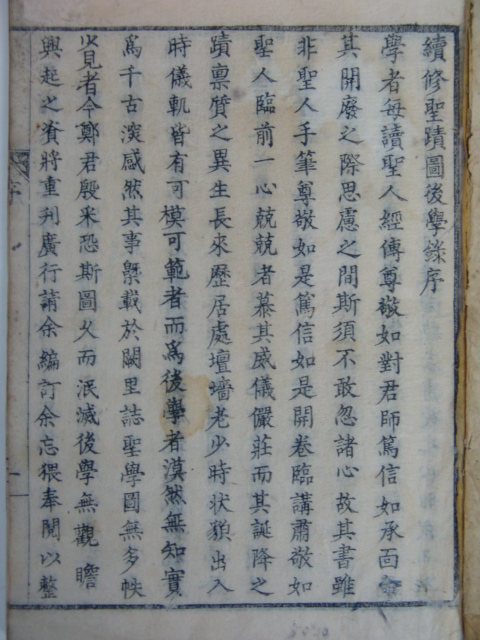 續修聖蹟圖後學錄序
學者每讀聖人經傳尊敬如對君師篤信如承面命
其開廢之際思慮之間斯須不敢忽諸心故其書雖
非聖人手筆尊敬如是篤信如是開卷臨講肅敬如
聖人臨前一心兢兢者慕其威儀儼莊而其誕降之
蹟禀質之異生長來歷居處壇墻老少時状㒵出入
時儀軌皆有可模可範者而爲後學者漠然無知實
爲千古深感然其事槩載於闕里誌聖學圖無多帙
尠見者今鄭君殷采恐斯圖久而泯滅後學無觀瞻
興起之資將重刋廣行請余編訂余忘猥奉閱以整
序
一